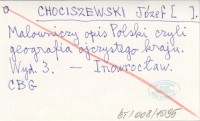 CHOCISZEWSKI Józef [ ].
Malowniczy opis Polski czyli
geografia ojczystego kraju.
Wyd. 3. — Inowrocław.
CBG